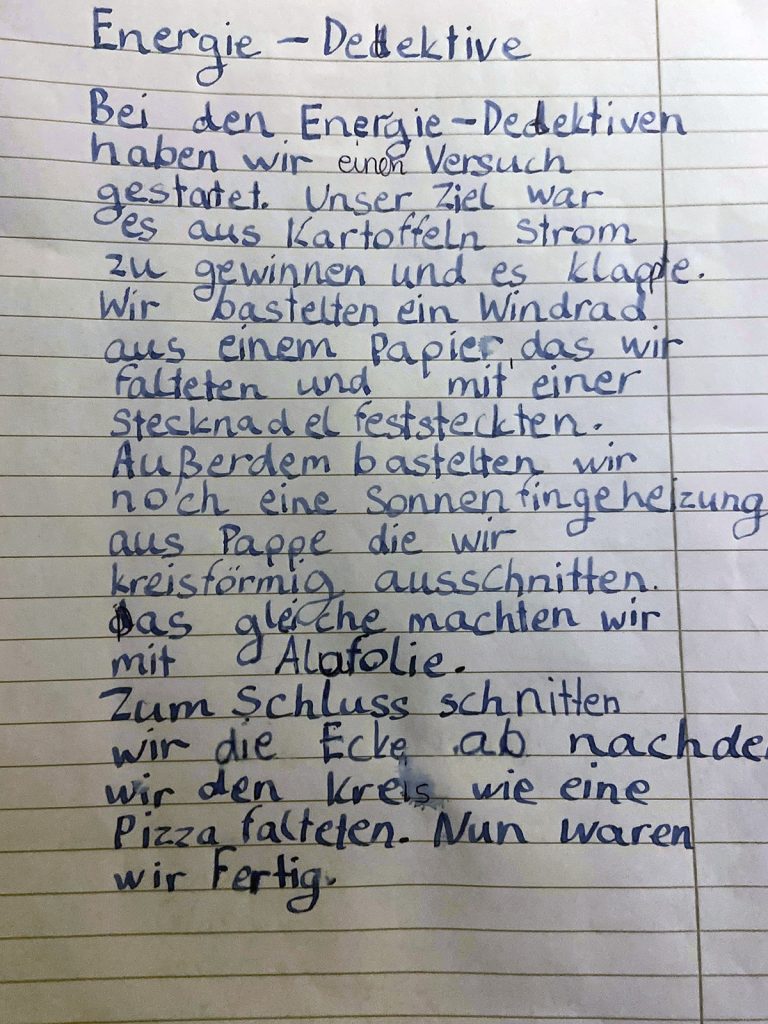 Energie - Detektive
Bei den Energie-Detektiven
haben wir einen Versuch
gestartet. Unser Ziel war
es aus Kartoffeln Strom
zu gewinnen und es klappte.
Wir bastelten ein Windrad
aus einem Papier, das wir
falteten und mit einer
Stecknadel feststeckten.
Außerdem bastelten wir
noch eine Sonnenfingeheizung
aus Pappe die wir
kreisförmig ausschnitten.
Das gleiche machten wir
mit Alafolie.
Zum Schluss schnitten
wir die Ecke ab nachde
wir den Kreis wie eine
Pizza falteten. Nun waren
wir Fertig.